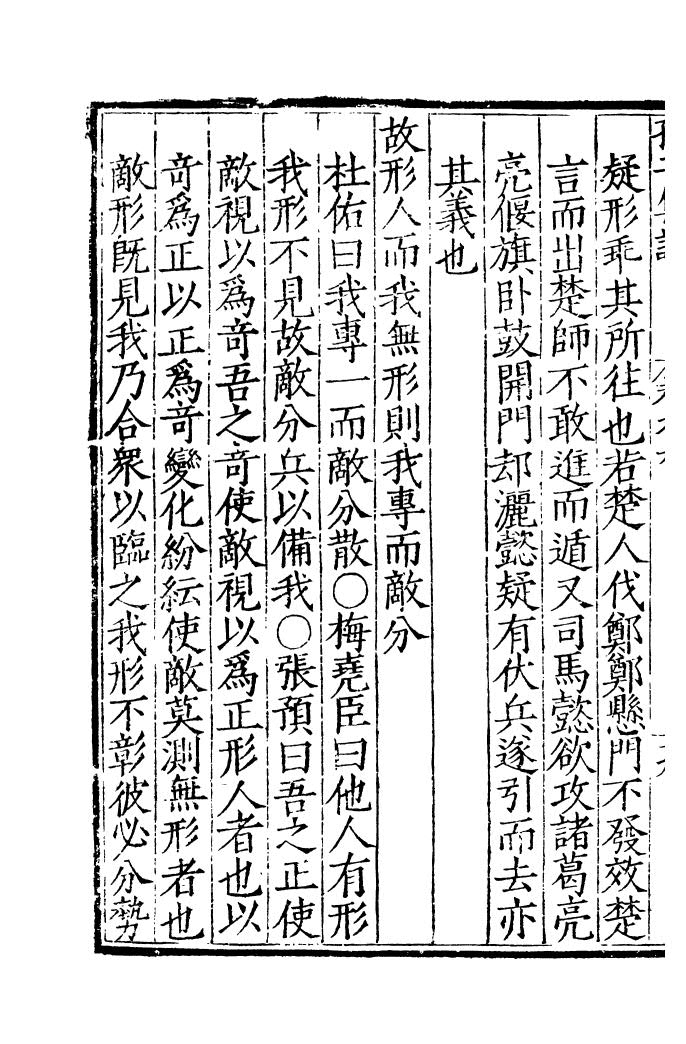 疑形乖其所往也若楚人伐鄭鄭懸門不發效楚
言而出楚師不敢進而遁又司馬懿欲攻諸葛亮
亮偃旗卧鼓開門却灑懿疑有伏兵遂引而去亦
其義也
故形人而我無形則我專而敵分
杜佑曰我專一而敵分散○梅堯臣曰他人有形
我形不見故敵分兵以備我○張預曰吾之正使
敵視以爲竒吾之竒使敵視以爲正形人者也以
竒爲正以正爲竒變化紛紜使敵莫測無形者也
敵形旣見我乃合衆以臨之我形不彰彼必分勢